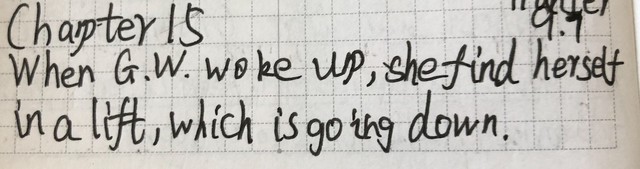 Chapter 15
9.7
When G.W. woke up, she find herself
in a lift, which is going down.